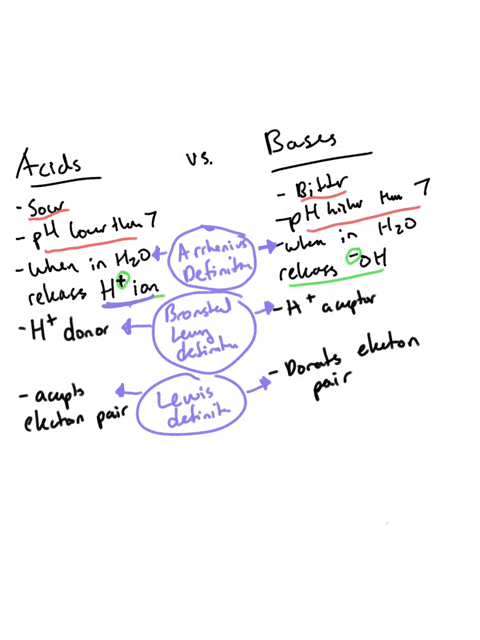 Acids
vs.
Bases
- Sour
- pH lower than 7
- When in H₂O
release H⁺ ion
- H⁺ donor
- accepts
electron pair
Arrhenius
Definition
Bronsted
Lowry
definition
Lewis
definition
- Bitter
- pH higher than 7
- When in H₂O
release ⁻OH
- H⁺ acceptor
- Donates electron
pair